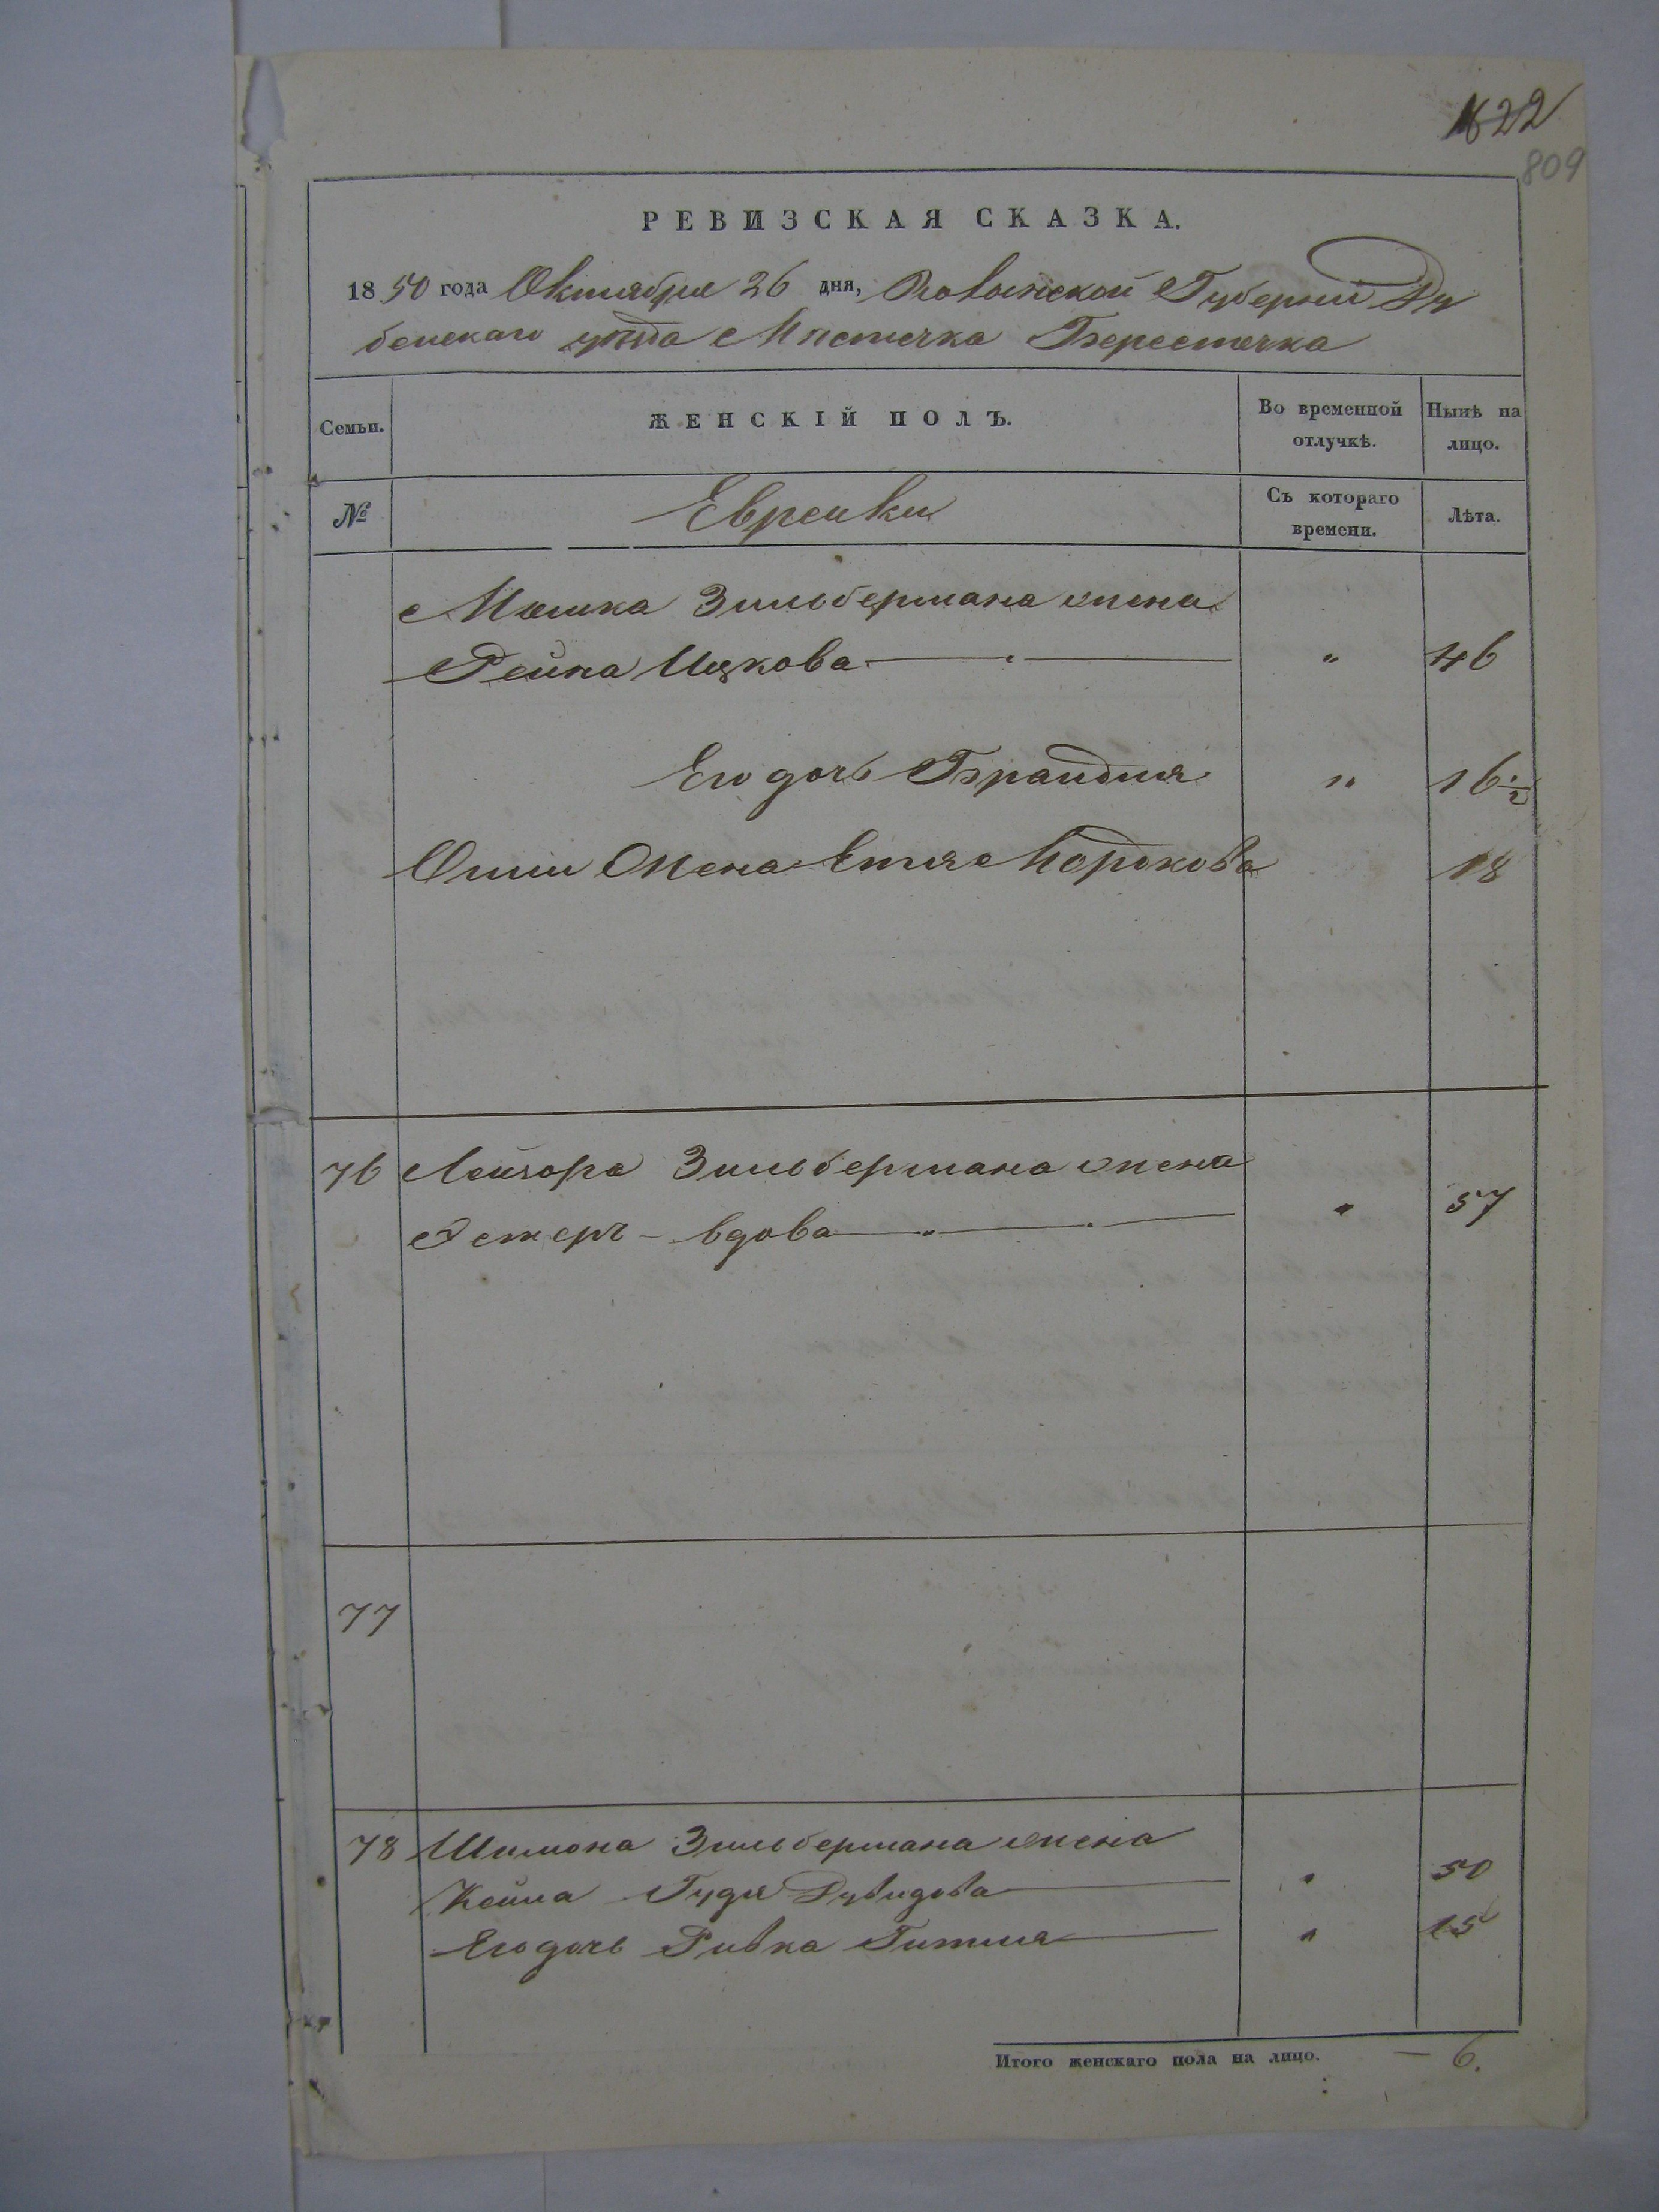 1622
809
РЕВИЗСКАЯ СКАЗКА.
1850 года Октября 26 дня, Волынской Губернии Ду
бенскаго уѣзда Мѣстечка Берестечка
Семьи.
ЖЕНСКІЙ ПОЛЪ.
Во временной отлучкѣ.
Нынѣ на лицо.
№
Евреики
Съ котораго времени.
Лѣта.
Мошка Зильбермана жена
Рейна Ицкова — „ 46
Его дочь Брандля „ 16 1/2
жена Етля Мордкова 18
76 Лейзора Зильбермана жена
Естеръ - вдова — „ 57
77
78 Шимона Зильбермана жена
Кейла Гудя Дувидова — „ 50
Его дочь Ривка Гитля — „ 15
Итого женскаго пола на лицо. — 6.